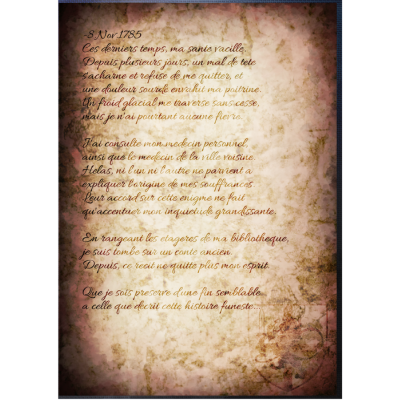 -8 Nov 1785
Ces derniers temps, ma sante vacille.
Depuis plusieurs jours, un mal de tete
s'acharne et refuse de me quitter, et
une douleur sourde envahit ma poitrine.
Un froid glacial me traverse sans cesse,
mais je n'ai pourtant aucune fievre.

J'ai consulte mon medecin personnel,
ainsi que le medecin de la ville voisine.
Helas, ni l'un ni l'autre ne parvient a
expliquer l'origine de mes souffrances.
Leur accord sur cette enigme ne fait
qu'accentuer mon inquietude grandissante.

En rangeant les etageres de ma bibliotheque,
je suis tombe sur un conte ancien.
Depuis, ce recit ne quitte plus mon esprit.

Que je sois preserve d'une fin semblable
a celle que decrit cette histoire funeste...